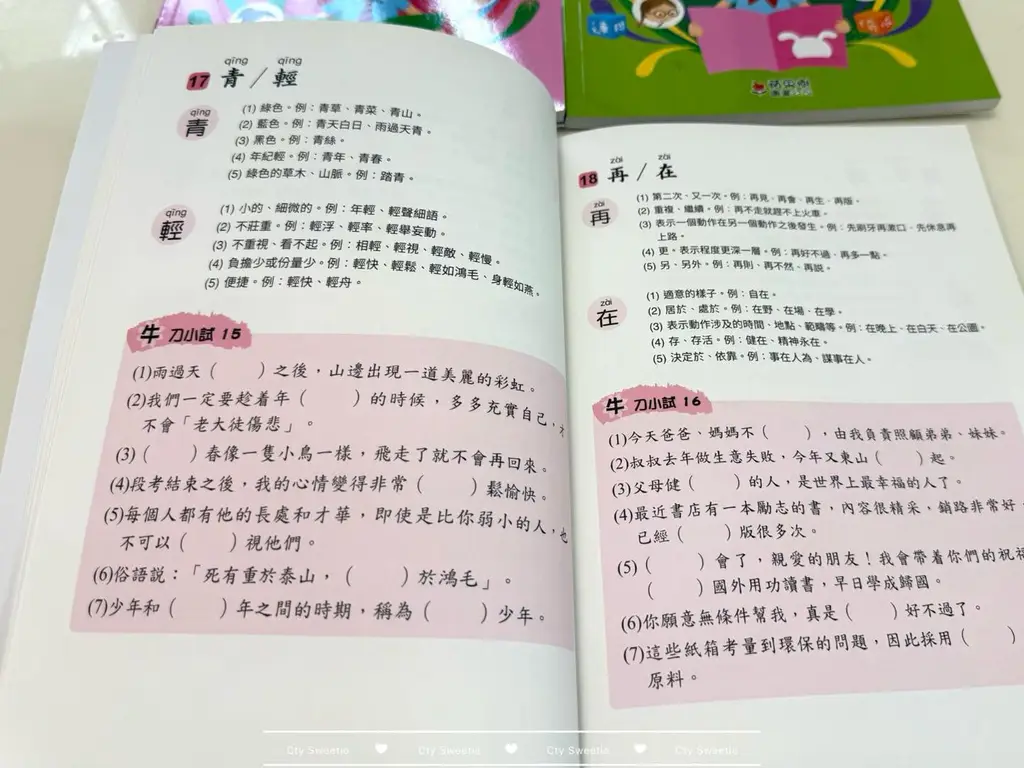 qīng qīng
17 青 / 輕
qīng
青
(1) 綠色。例：青草、青菜、青山。
(2) 藍色。例：青天白日、雨過天青。
(3) 黑色。例：青絲。
(4) 年紀輕。例：青年、青春。
(5) 綠色的草木、山脈。例：踏青。
qīng
輕
(1) 小的、細微的。例：年輕、輕聲細語。
(2) 不莊重。例：輕浮、輕率、輕舉妄動。
(3) 不重視、看不起。例：相輕、輕視、輕敵、輕慢。
(4) 負擔少或份量少。例：輕快、輕鬆、輕如鴻毛、身輕如燕。
(5) 便捷。例：輕快、輕舟。
牛刀小試 15
(1)雨過天（　　）之後，山邊出現一道美麗的彩虹。
(2)我們一定要趁着年（　　）的時候，多多充實自己，才
不會「老大徒傷悲」。
(3)（　　）春像一隻小鳥一樣，飛走了就不會再回來。
(4)段考結束之後，我的心情變得非常（　　）鬆愉快。
(5)每個人都有他的長處和才華，即使是比你弱小的人，也
不可以（　　）視他們。
(6)俗語説：「死有重於泰山，（　　）於鴻毛」。
(7)少年和（　　）年之間的時期，稱為（　　）少年。
zài zài
18 再 / 在
zài
再
(1) 第二次、又一次。例：再見、再會、再生、再版。
(2) 重複、繼續。例：再不走就趕不上火車。
(3) 表示一個動作在另一個動作之後發生。例：先刷牙再漱口、先休息再
上路。
(4) 更。表示程度更深一層。例：再好不過、再多一點。
(5) 另、另外。例：再則、再不然、再説。
zài
在
(1) 適意的樣子。例：自在。
(2) 居於、處於。例：在野、在場、在學。
(3) 表示動作涉及的時間、地點、範疇等。例：在晚上、在白天、在公園。
(4) 存、存活。例：健在、精神永在。
(5) 決定於、依靠。例：事在人為、謀事在人。
牛刀小試 16
(1)今天爸爸、媽媽不（　　），由我負責照顧弟弟、妹妹。
(2)叔叔去年做生意失敗，今年又東山（　　）起。
(3)父母健（　　）的人，是世界上最幸福的人了。
(4)最近書店有一本勵志的書，內容很精采，銷路非常好，
已經（　　）版很多次。
(5)（　　）會了，親愛的朋友！我會帶着你們的祝福
（　　）國外用功讀書，早日學成歸國。
(6)你願意無條件幫我，真是（　　）好不過了。
(7)這些紙箱考量到環保的問題，因此採用（　　）
原料。
Cty Sweetie Cty Sweetie Cty Sweetie Cty Sweetie